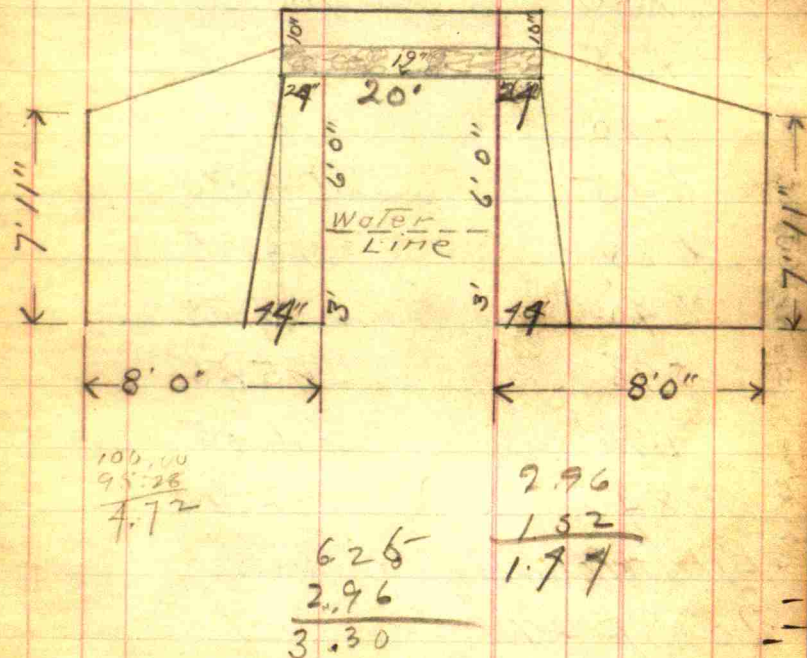 10" 10"
12"
24" 20' 24"
7'11" 6'0" 6'0" 7'11"
Water
Line
44" 3' 3' 44"
8' 0" 8'0"
100.00
95.28
4.72
2.96
152
1.44
626
2.96
3.30